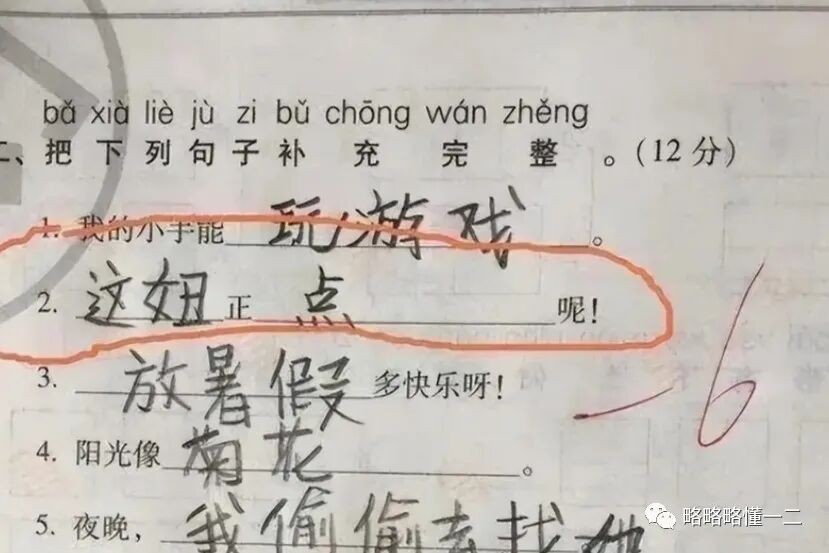 bǎ xià liè jù zi bǔ chōng wán zhěng
二、把下列句子补充完整。(12分)
1. 我的小手能玩游戏。
2. 这妞正点呢!
3. 放暑假多快乐呀!
4. 阳光像菊花。
5. 夜晚,我偷偷去找她
-6
略略略懂一二